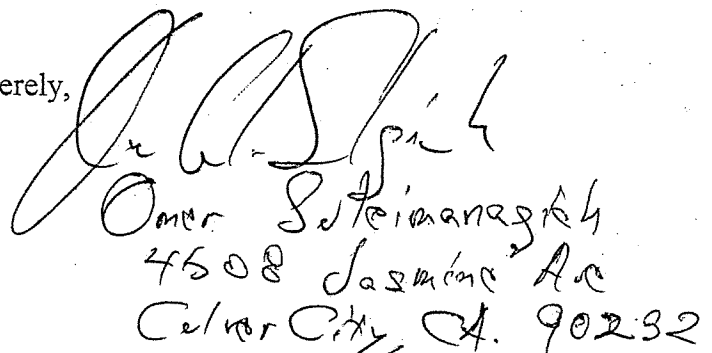 erely,
Omer Suleimanagich
4508 Jasmine Ave
Culver City, CA. 90232